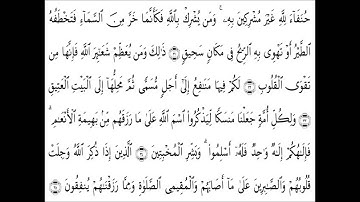 حُنَفَآءَ لِلَّهِ غَيْرَ مُشْرِكِينَ بِهِۦ ۚ وَمَن يُشْرِكْ بِٱللَّهِ فَكَأَنَّمَا خَرَّ مِنَ ٱلسَّمَآءِ فَتَخْطَفُهُ
ٱلطَّيْرُ أَوْ تَهْوِى بِهِ ٱلرِّيحُ فِى مَكَانٍ سَحِيقٍ ۝ ذَٰلِكَ وَمَن يُعَظِّمْ شَعَٰٓئِرَ ٱللَّهِ فَإِنَّهَا مِن
تَقْوَى ٱلْقُلُوبِ ۝ لَكُمْ فِيهَا مَنَٰفِعُ إِلَىٰٓ أَجَلٍ مُّسَمًّى ثُمَّ مَحِلُّهَآ إِلَى ٱلْبَيْتِ ٱلْعَتِيقِ
۝ وَلِكُلِّ أُمَّةٍ جَعَلْنَا مَنسَكًا لِّيَذْكُرُوا۟ ٱسْمَ ٱللَّهِ عَلَىٰ مَا رَزَقَهُم مِّنۢ بَهِيمَةِ ٱلْأَنْعَٰمِ ۗ
فَإِلَٰهُكُمْ إِلَٰهٌ وَٰحِدٌ فَلَهُۥٓ أَسْلِمُوا۟ ۗ وَبَشِّرِ ٱلْمُخْبِتِينَ ۝ ٱلَّذِينَ إِذَا ذُكِرَ ٱللَّهُ وَجِلَتْ
قُلُوبُهُمْ وَٱلصَّٰبِرِينَ عَلَىٰ مَآ أَصَابَهُمْ وَٱلْمُقِيمِى ٱلصَّلَوٰةِ وَمِمَّا رَزَقْنَٰهُمْ يُنفِقُونَ ۝